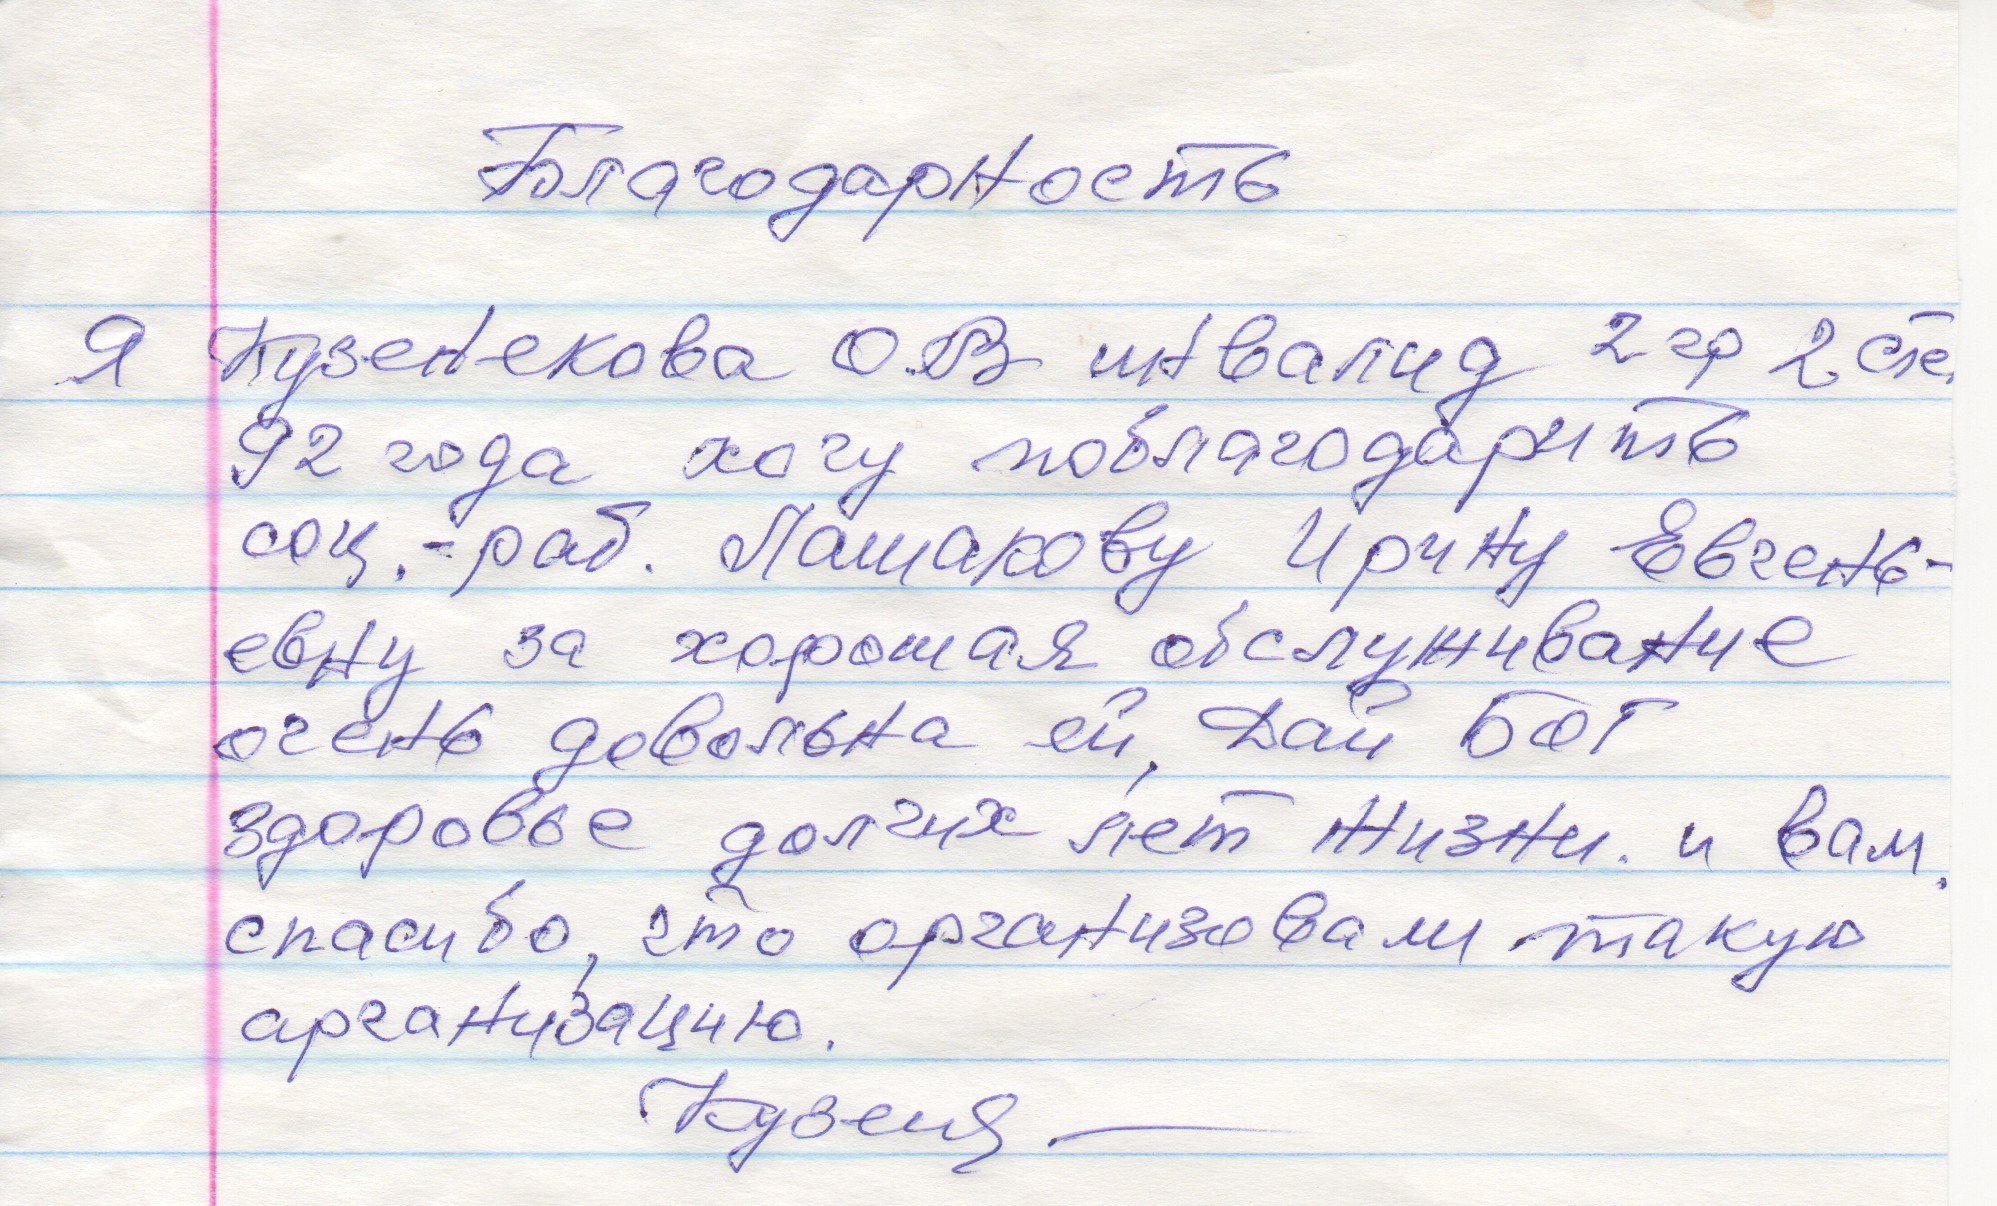 Благодарность
Я Кузенекова О.В инвалид 2 гр 2 сте.
92 года хочу поблагодарить
соц.-раб. Лашакову Ирину Евгень-
евну за хорошая обслуживание
очень довольна ей, Дай БОГ
здоровье долгих лет жизни. и вам.
спасибо, что организовали такую
арганизацию.